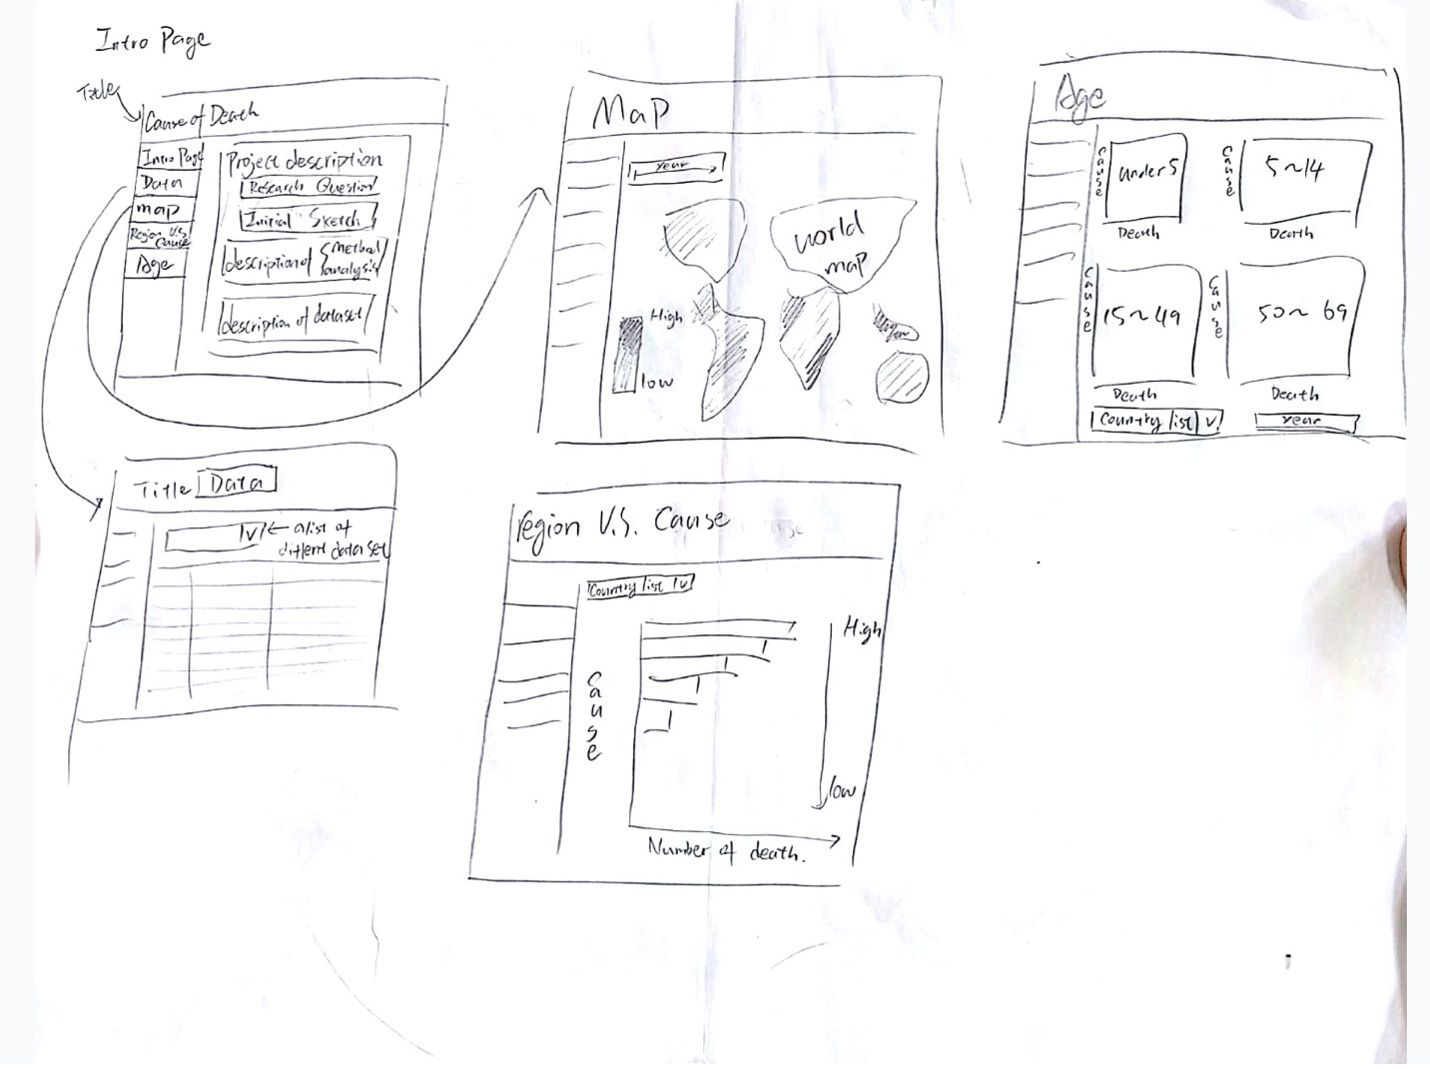 Intro Page
Title
Cause of Death
Intro Page
Data
map
Region V.S.
Cause
Age
Project description
Research Question
Initial Sketch
description of
method
analysis
description of dataset
Map
year
world
map
High
low
Age
Cause
under 5
Death
Cause
5~14
Death
Cause
15~49
Death
Cause
50~69
Death
Country list V
year
Title Data
V ← a list of
different data set
region V.S. Cause
Country list V
Cause
High
low
Number of death.